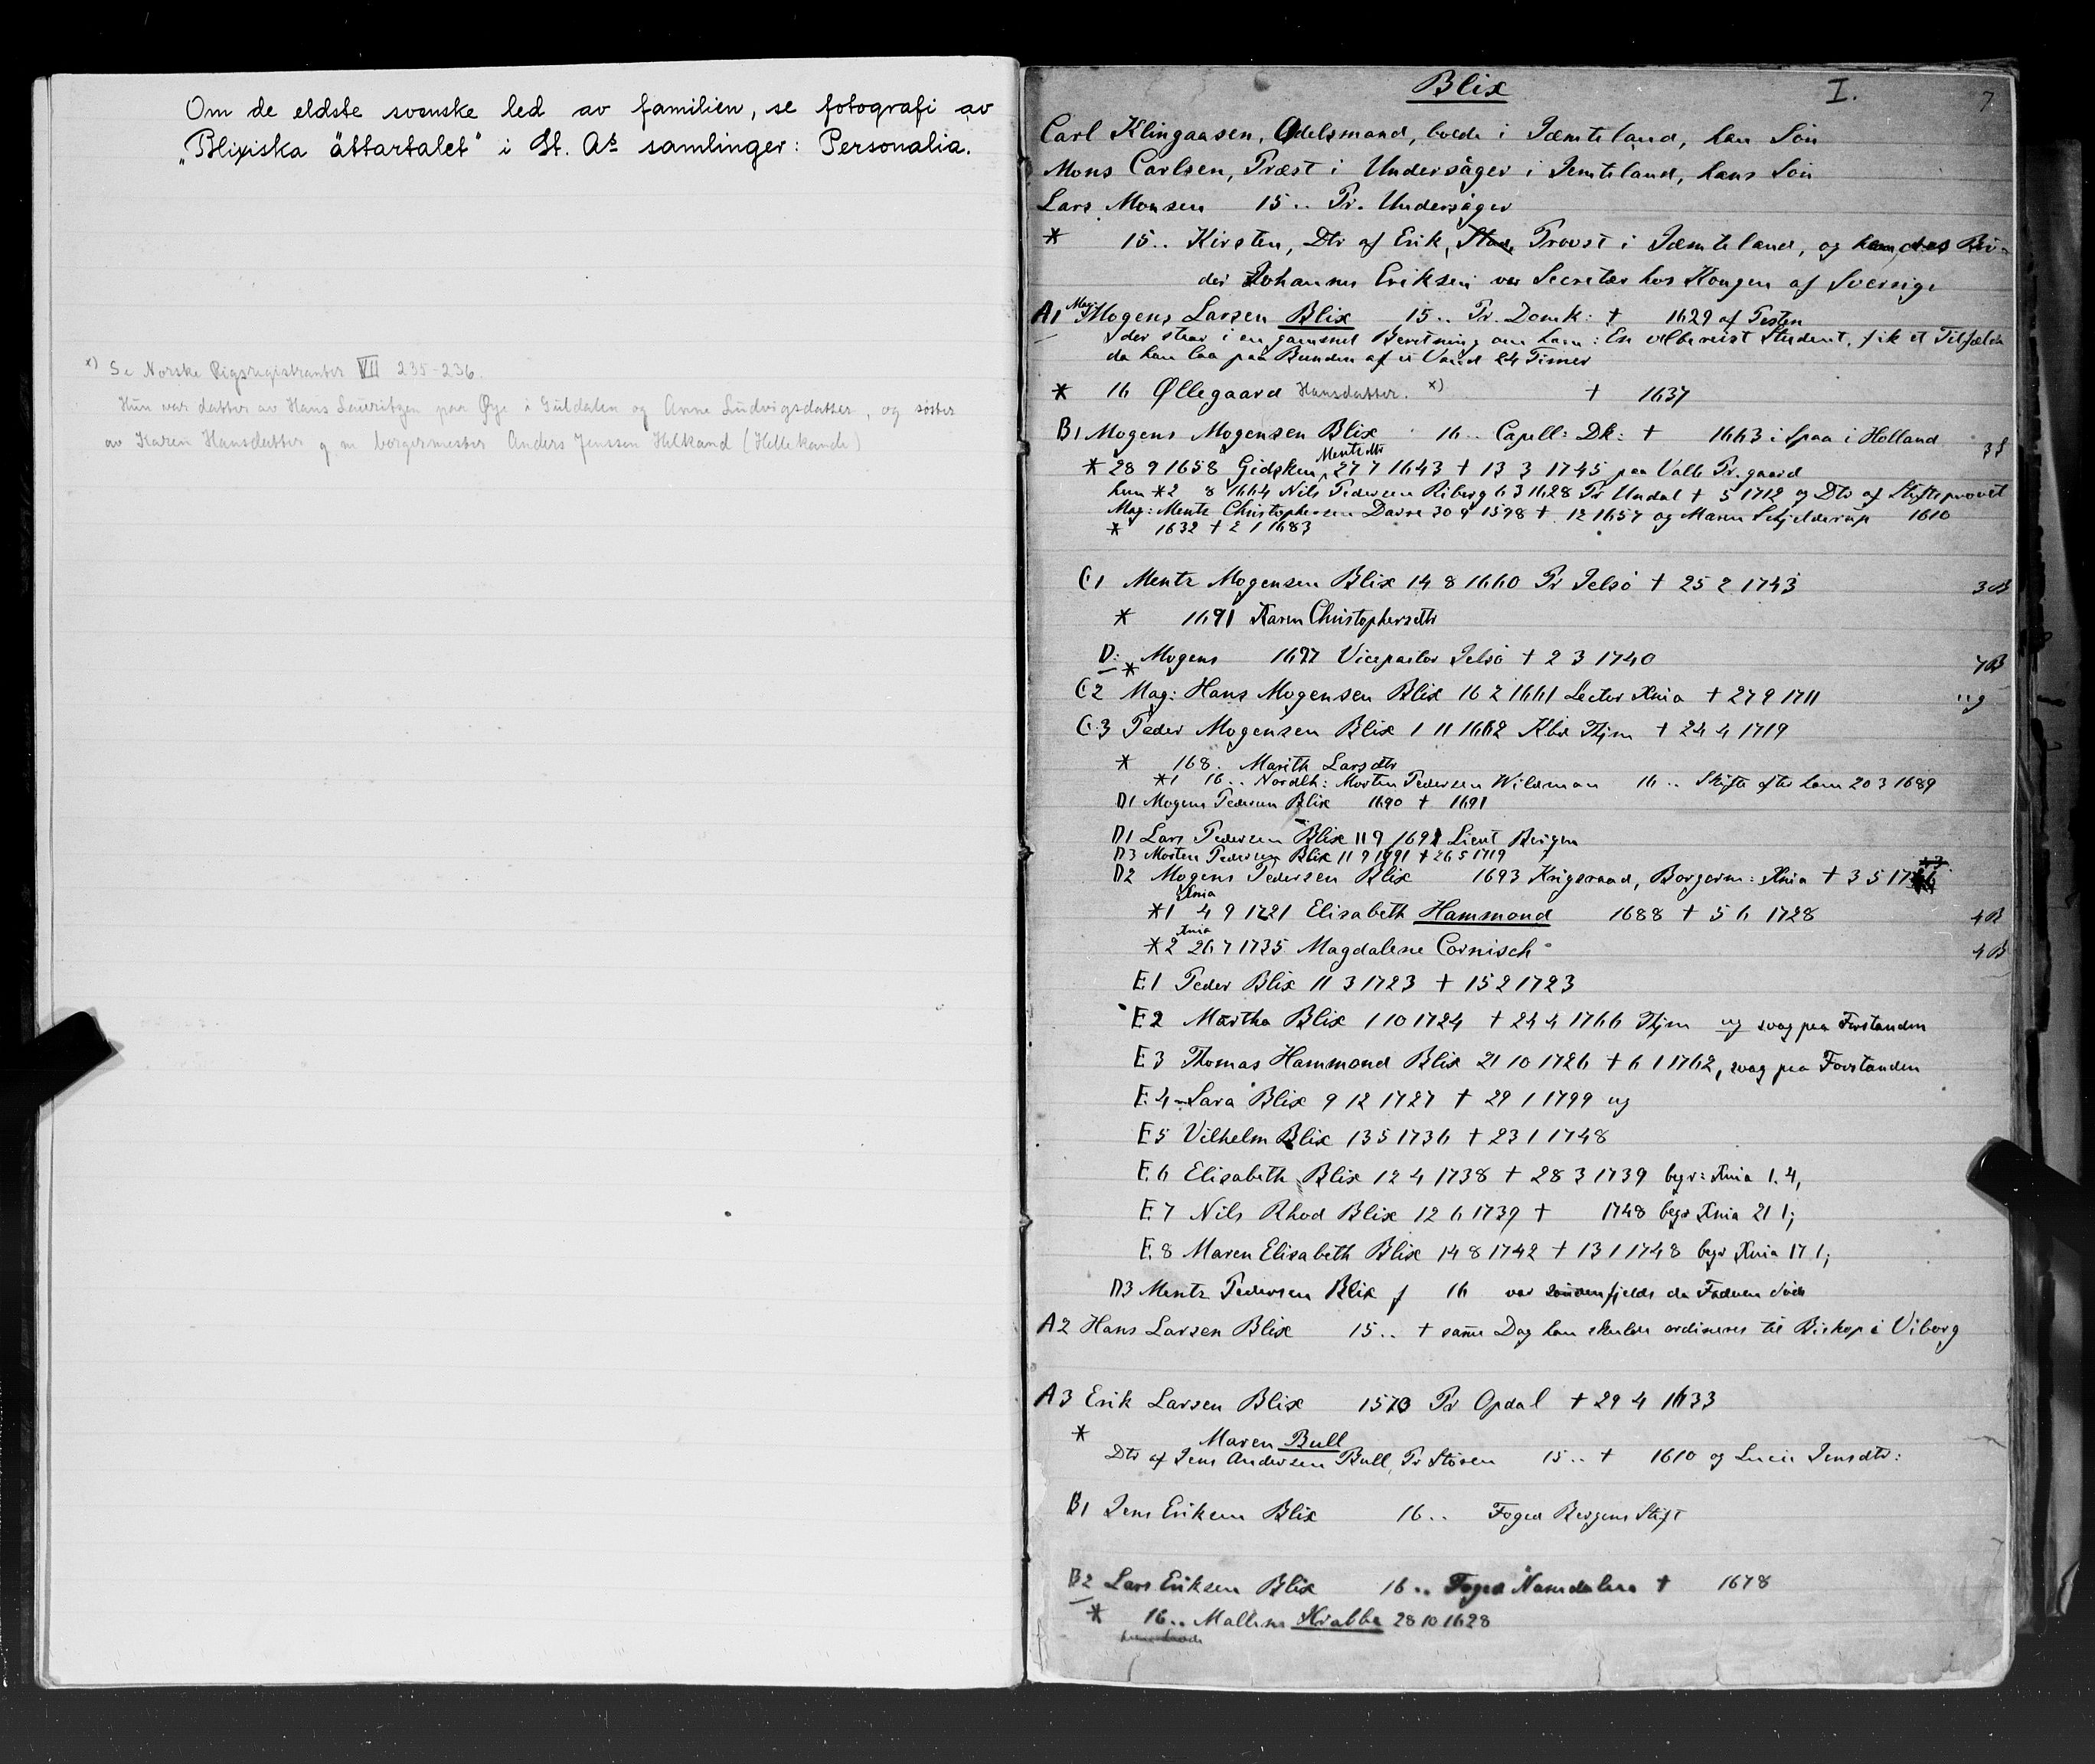 Om de eldste svenske led av familien, se fotografi av
„Blixiska ättartalet" i St. As samlinger: Personalia.
x) Se Norske Rigsregistranter VII 235-236.
Hun var datter av Hans Lauritzen paa Øye i Guldalen og Anne Ludvigsdatter, og søster
av Karen Hansdatter g m borgermester Anders Jenssen Helkand (Hellekande)
Blix I. 7
Carl Klingaasen, Adelsmand, boede i Jæmteland, hans Søn
Mons Carlsen, Præst i Undersåger i Jemteland, hans Søn
Lars Monsen 15.. Pr. Undersåger
* 15.. Kirsten, Dtr af Erik, Provst i Jæmteland, og hendes Bro-
der Johannes Eriksen var Secretær hos Kongen af Sverige
A1 Mag: Mogens Larsen Blix 15.. Pr. Domk: † 1629 af Pesten
der staar i en gammel Beretning om ham: En velbereist Student, fik et Tilfælde
da han laa paa Bunden af et Vand 24 Timer
* 16 Øllegaard Hansdatter. x) † 1637
B1 Mogens Mogensen Blix 16.. Capell: Dk: † 1663 i Spaa i Holland
* 28 9 1658 Gidsken Mentzdtr 27 7 1643 † 13 3 1745 paa Valle Pr.gaard
hun *2 8 1664 Nils Pedersen Riberg 6 3 1628 Pr Undal † 5 1712 og Dtr af Stiftsprovst
Mag: Mentz Christophersen Darre 30 9 1598 † 12 1657 og Maren Schjelderup 1610
* 1632 † 2 1 1683
C1 Mentz Mogensen Blix 14 8 1660 Pr Jelsø † 25 2 1743 3B
* 1691 Karen Christophersdtr
D: Mogens 1697 Vicepastor Jelsø † 2 3 1740 7B
*
C2 Mag: Hans Mogensen Blix 16 2 1661 Lector Xnia † 27 9 1711 ug
C3 Peder Mogensen Blix 1 11 1662 Kbr Thjm † 24 4 1719
* 168. Marith Larsdtr
*1 16.. Nordlh: Morten Pedersen Wildman 16.. Skifte efter ham 20 3 1689
D1 Mogens Pedersen Blix 1690 † 1691
D1 Lars Pedersen Blix 11 9 1691 Lieut Bergen
D3 Morten Pedersen Blix 11 9 1691 † 26 5 1719
D2 Mogens Pedersen Blix 1693 Krigsraad, Borgerm: Xnia † 3 5 1746
*1 Xnia 4 9 1721 Elisabeth Hammond 1688 † 5 6 1728 4B
*2 Xnia 26 7 1735 Magdalene Cornisch 4B
E1 Peder Blix 11 3 1723 † 15 2 1723
E2 Martha Blix 1 10 1724 † 24 4 1766 Thjm ug svag paa Forstanden
E3 Thomas Hammond Blix 21 10 1726 † 6 1 1762, svag paa Forstanden
E4 Sara Blix 9 12 1727 † 29 1 1799 ug
E5 Vilhelm Blix 13 5 1736 † 23 1 1748
E6 Elisabeth Blix 12 4 1738 † 28 3 1739 begr: Xnia 1.4,
E7 Nils Rhod Blix 12 6 1739 † 1748 begr Xnia 21 1;
E8 Maren Elisabeth Blix 14 8 1742 † 13 1 1748 begr Xnia 17 1;
D3 Mentz Pedersen Blix f 16 var søndenfjelds da Faderen døde
A2 Hans Larsen Blix 15.. † samme Dag han skulde ordineres til Biskop i Viborg
A3 Erik Larsen Blix 1573 Pr Opdal † 29 4 1633
* Maren Bull
Dtr af Jens Andersen Bull, Pr Støren 15.. † 1610 og Lucie Jensdtr:
B1 Jens Eriksen Blix 16.. Foged Bergens Stift
B2 Lars Eriksen Blix 16.. Foged Namdalen † 1678
* 16.. Mallene Krabbe 28 10 1628